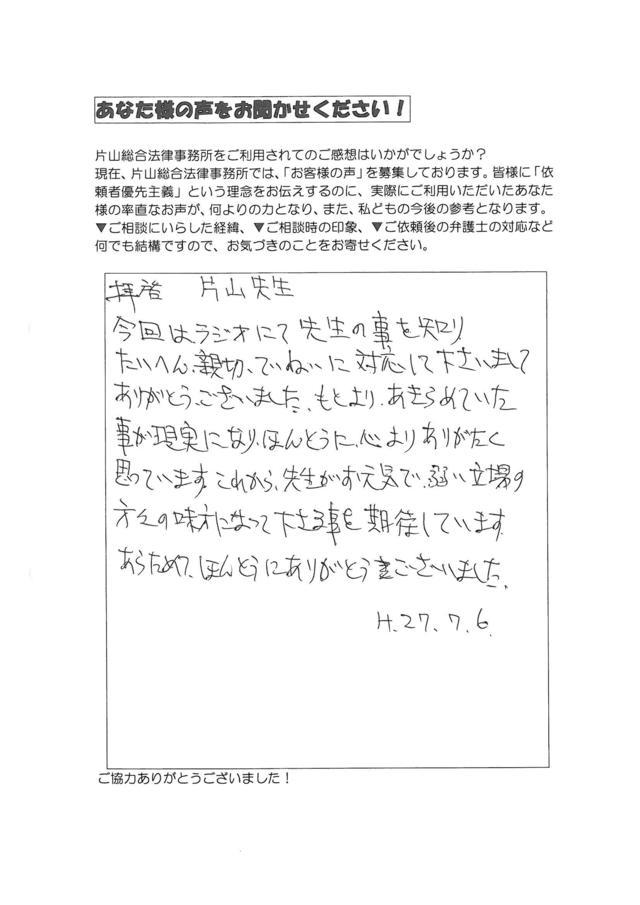 あなた様の声をお聞かせください！
片山総合法律事務所をご利用されてのご感想はいかがでしょうか？
現在、片山総合法律事務所では、「お客様の声」を募集しております。皆様に「依
頼者優先主義」という理念をお伝えするのに、実際にご利用いただいたあなた
様の率直なお声が、何よりの力となり、また、私どもの今後の参考となります。
▼ご相談にいらした経緯、▼ご相談時の印象、▼ご依頼後の弁護士の対応など
何でも結構ですので、お気づきのことをお寄せください。
拝啓　片山先生
今回は、ラジオにて先生の事を知り、
たいへん、親切、ていねいに対応して下さいまして
ありがとうございました。もとより、あきらめていた
事が現実になり、ほんとうに、心よりありがたく
思っています。これから、先生がお元気で、弱い立場の
方々の味方になって下さる事を期待しています。
あらためて、ほんとうにありがとうございました。
H.27.7.6.
ご協力ありがとうございました！